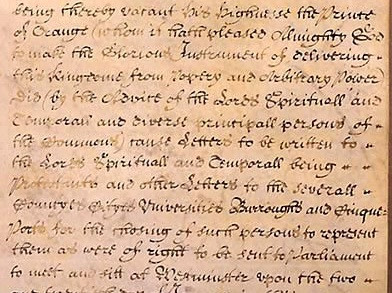 being thereby vacant His Highnesse the Prince
of Orange (whom it hath pleased Almighty God
to make the Glorious Instrument of delivering
this Kingdome from Popery and Arbitrary Power
Did (by the Advice of the Lords Spirituall and
Temporall and diverse principall persons of
the Commons) cause Letters to be written to
the Lords Spirituall and Temporall being
Protestants and other Letters to the severall
Countyes Cityes Universities Burroughs and Cinque
Ports for the choosing of such persons to represent
them as were of right to be sent to Parliament
to meet and sitt at Westminster upon the two